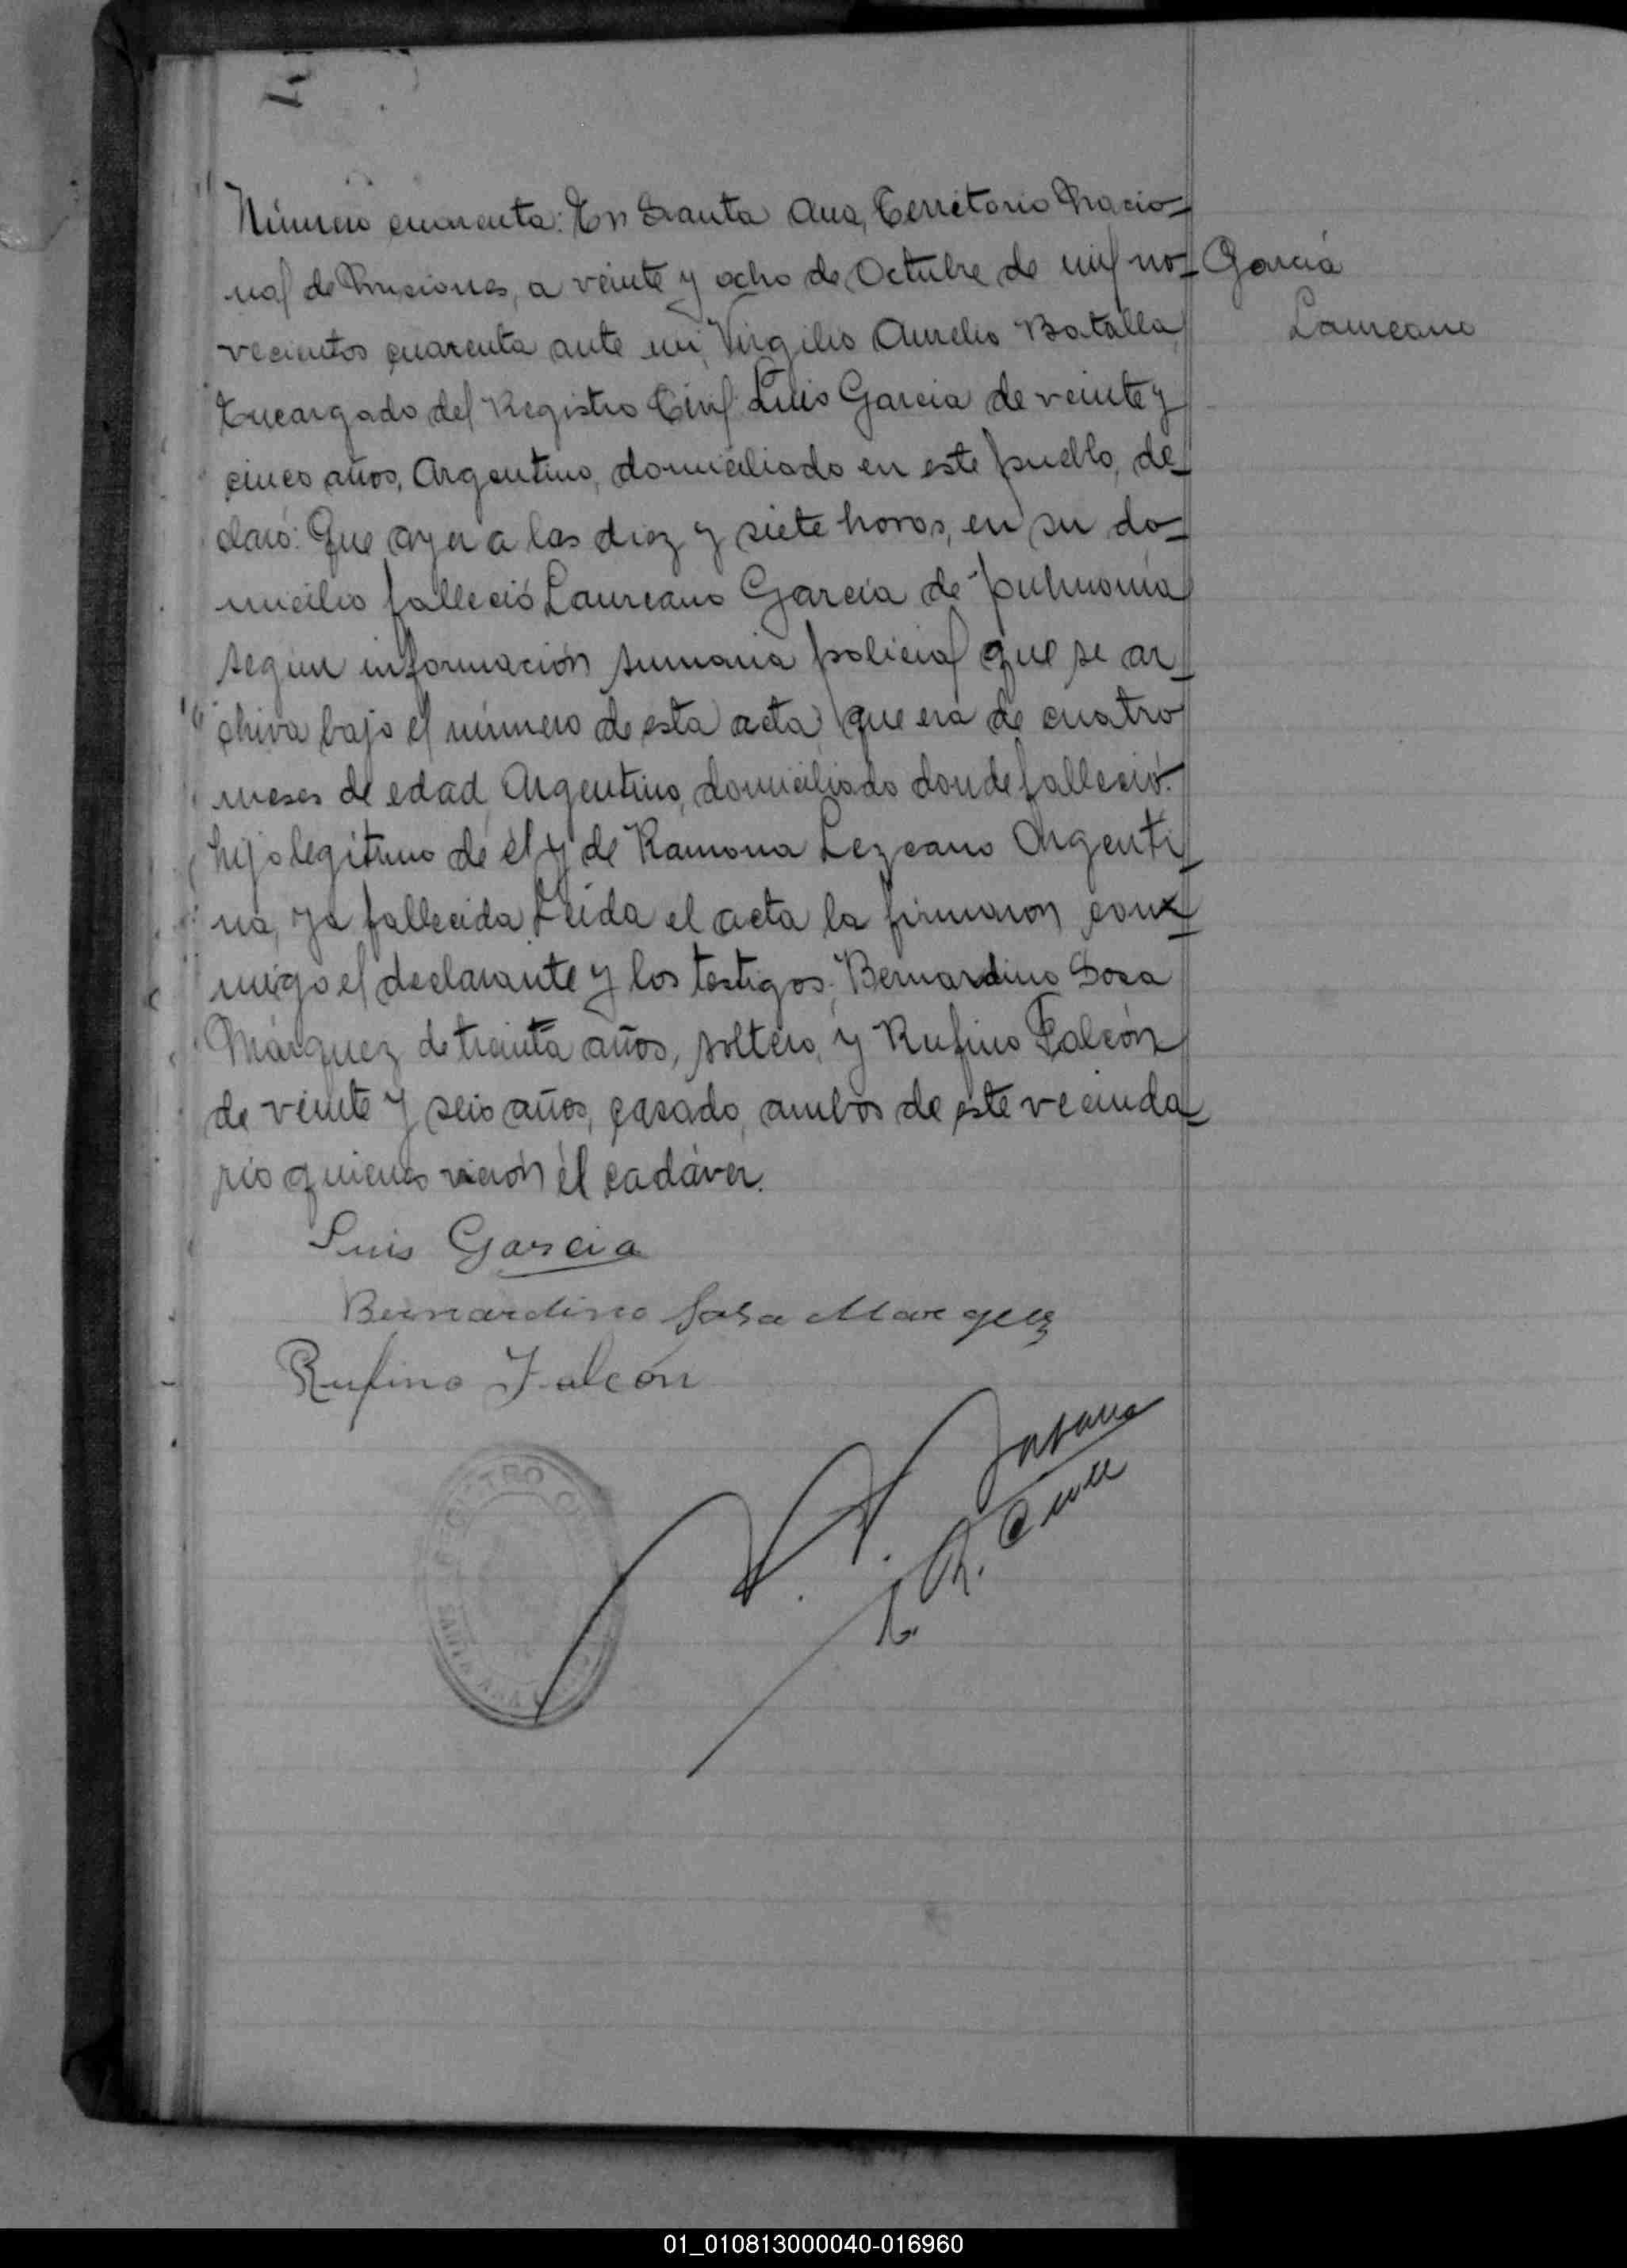 Número cuarenta: En Santa Ana, Territorio Nacio-
nal de Misiones, a veinte y ocho de Octubre de mil no-
García
vecientos cuarenta ante mi, Virgilio Aurelio Batalla,
Laureano
Encargado del Registro Civil: Luis Garcia de veinte y
cinco años, Argentino, domiciliado en este pueblo, de-
claró: Que ayer a las diez y siete horas, en su do-
micilio falleció Laureano Garcia de pulmonía
segun información sumaria policial que se ar-
chiva bajo el número de esta acta, que era de cuatro
meses de edad, Argentino, domiciliado donde falleció.
hijo legítimo de él y de Ramona Lezcano Argenti-
na, ya fallecida Leida el acta la firmaron con-
migo el declarante y los testigos: Bernardino Sosa
Márquez de treinta años, soltero, y Rufino Falcón
de veinte y seis años, casado, ambos de este vecinda-
rio quienes vieron él cadáver.
Luis Garcia
Bernardino Sosa Marquez
Rufino Falcón
REGISTRO
SANTA ANA
01_010813000040-016960